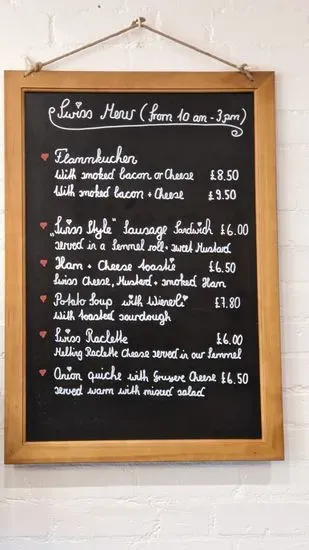 Swiss Menu (from 10 am - 3 pm)
Flammkuchen
with smoked bacon or Cheese £8.50
with smoked bacon + Cheese £9.50
"Swiss Style" Sausage Sandwich £6.00
served in a Semmel roll + sweet Mustard
Ham + Cheese toastie £6.50
Swiss Cheese, Mustard + smoked Ham
Potato Soup with Wienerli £7.80
With toasted sourdough
Swiss Raclette £6.00
Melting Raclette Cheese served in our Semmel
Onion quiche with Gruyere Cheese £6.50
served warm with mixed salad